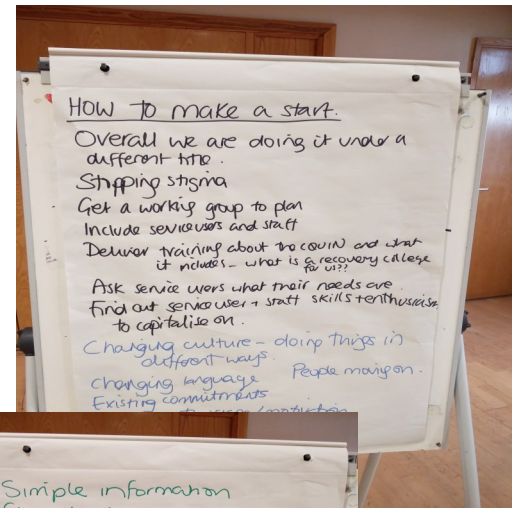 HOW TO make a start.
Overall we are doing it under a
different title.
Stripping stigma
Get a working group to plan
Include service users and staff
Deliver training about the COLIN and what
it includes - what is a recovery college
for us??
Ask service users what their needs are
Find out service user + staff skills + enthusiasm
to capitalise on.
Changing culture - doing things in
different ways.
People moving on.
Changing language
Existing commitments
Simple information